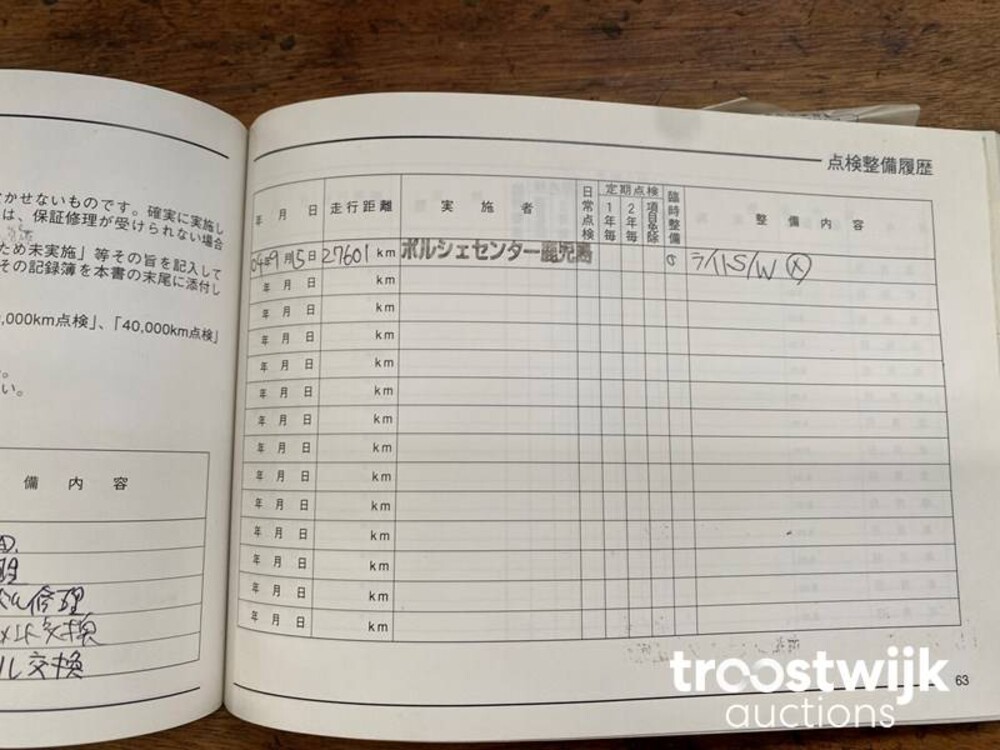 かせないものです。確実に実施し
は、保証修理が受けられない場合
ため未実施」等その旨を記入して
その記録簿を本書の末尾に添付し
,000km点検」、「40,000km点検」
。
い。
備 内 容
修理
交換
ル交換
点検整備履歴
年 月 日 走行距離 実 施 者 日常点検 定期点検 1年毎 2年毎 項目免除 臨時整備 整 備 内 容
04年9月15日 27601 km ポルシェセンター鹿児島 ライトS/W
年 月 日 km
年 月 日 km
年 月 日 km
年 月 日 km
年 月 日 km
年 月 日 km
年 月 日 km
年 月 日 km
年 月 日 km
年 月 日 km
年 月 日 km
年 月 日 km
年 月 日 km
troostwijk
auctions
63